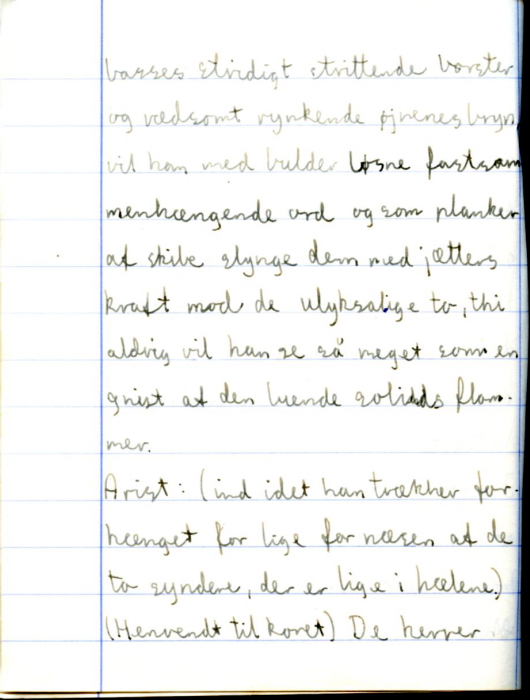 basses stridigt strittende børster
og vredsomt rynkende øjnenes bryn
vil han med bulder løsne fastsam
menhængende ord og som planker
af skibe slynge dem med jætters
kraft mod de ulyksalige to, thi
aldrig vil han se så meget som en
gnist af den luende solilds flam-
mer.
Arist: (ind idet han trækker for-
hænget for lige for næsen af de
to syndere, der er lige i hælene.)
(Henvendt til koret) De herrer